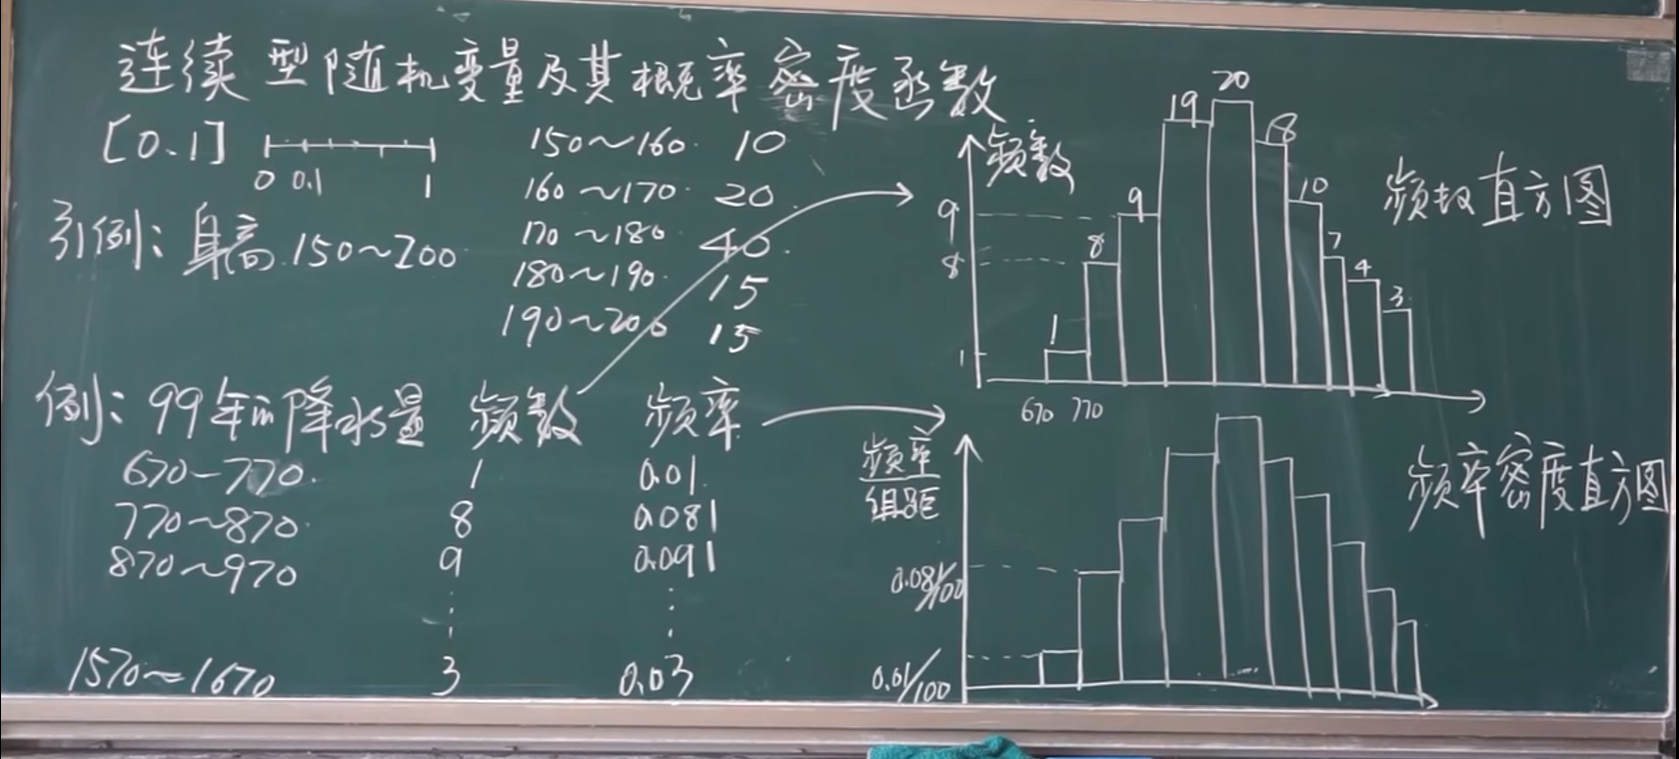 连续型随机变量及其概率密度函数
[0.1]
0 0.1 1
引例: 身高 150~200
150~160 10
160~170 20
170~180 40
180~190 15
190~200 15
例: 99年的降水量 频数 频率
670~770 1 0.01
770~870 8 0.081
870~970 9 0.091
⋮ ⋮
1570~1670 3 0.03
频数
9
8
1
1 8 9 19 20 8 10 7 4 3
670 770
频数直方图
频率/组距
0.081/100
0.01/100
频率密度直方图